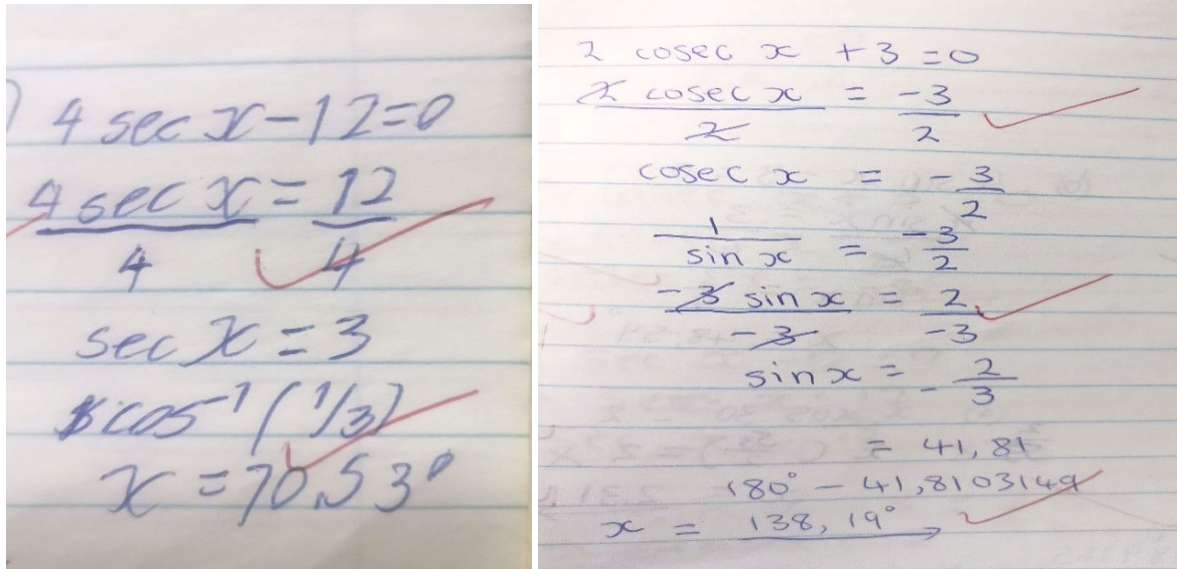 4 sec x - 12 = 0
4 sec x / 4 = 12 / 4
sec x = 3
cos⁻¹ (1/3)
x = 70,53°
2 cosec x + 3 = 0
2 cosec x / 2 = -3 / 2
cosec x = - 3/2
1 / sin x = -3 / 2
-3 sin x / -3 = 2 / -3
sin x = - 2/3
= 41,81
180° - 41,8103149
x = 138,19°